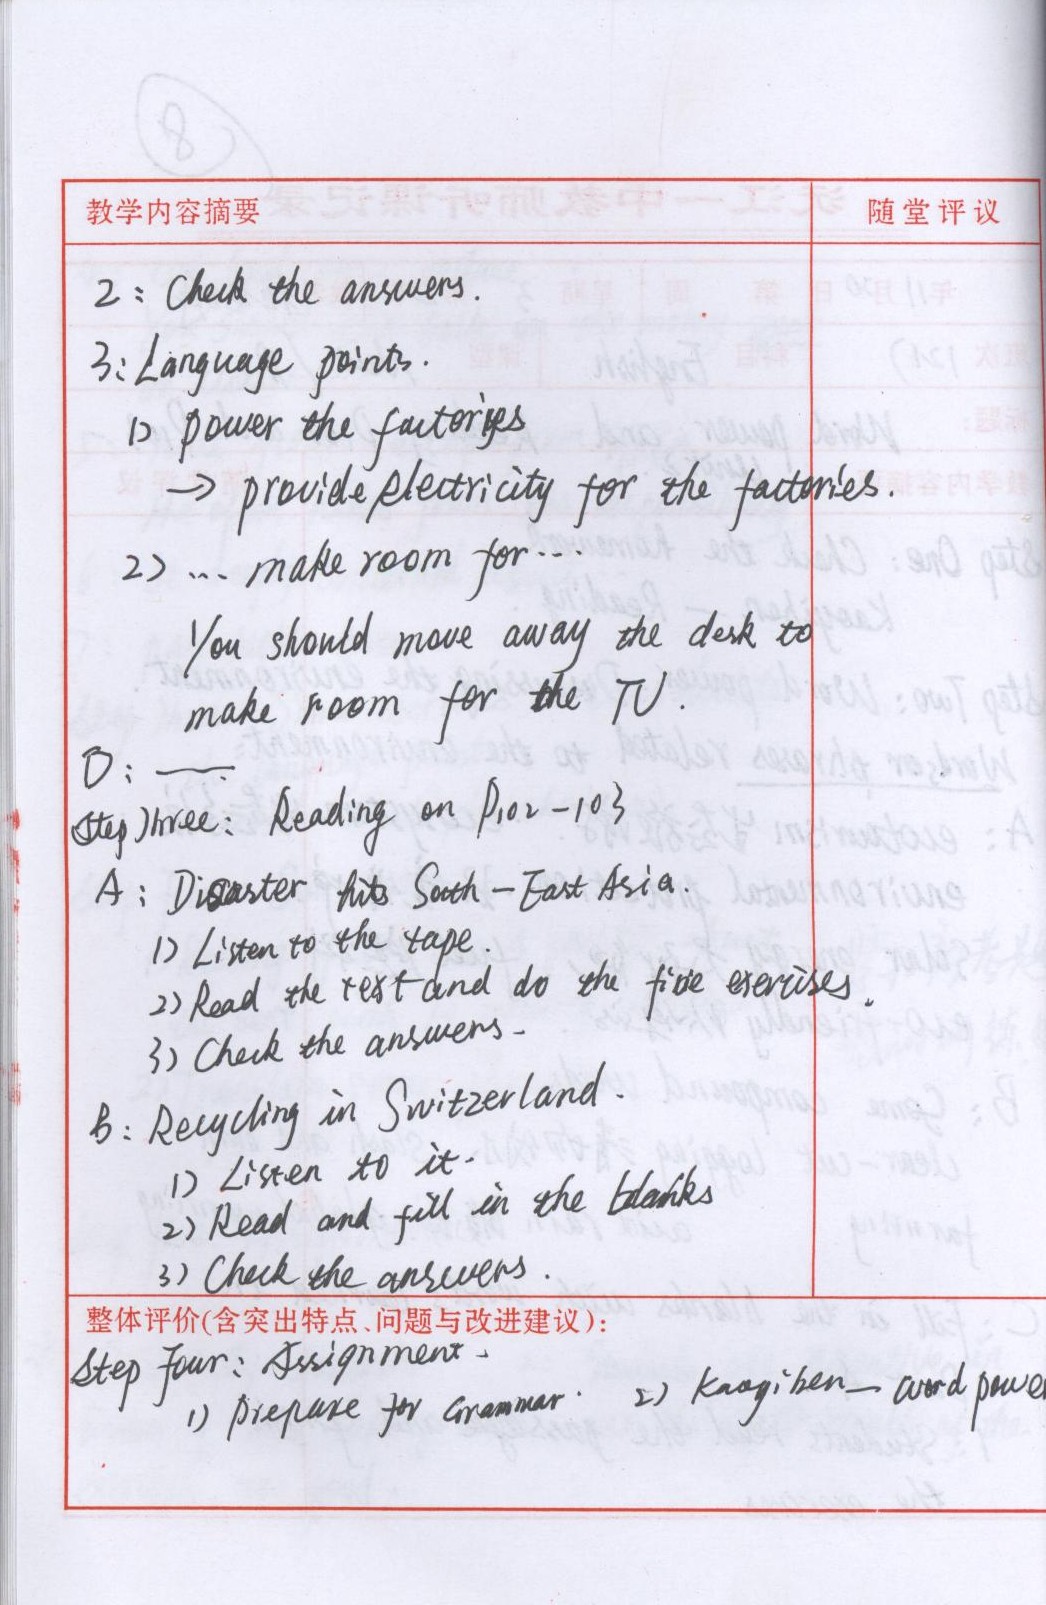 教学内容摘要 随堂评议
2: Check the answers.
3: Language points.
1) power the factories
→ provide electricity for the factories.
2) ... make room for ...
You should move away the desk to
make room for the TV.
D: —
Step Three: Reading on P102-103
A: Disaster hits South-East Asia.
1) Listen to the tape.
2) Read the text and do the five exercises.
3) Check the answers.
B: Recycling in Switzerland.
1) Listen to it.
2) Read and fill in the blanks
3) Check the answers.
整体评价(含突出特点、问题与改进建议):
Step Four: Assignment.
1) Prepare for Grammar. 2) Kaoyiben — word power